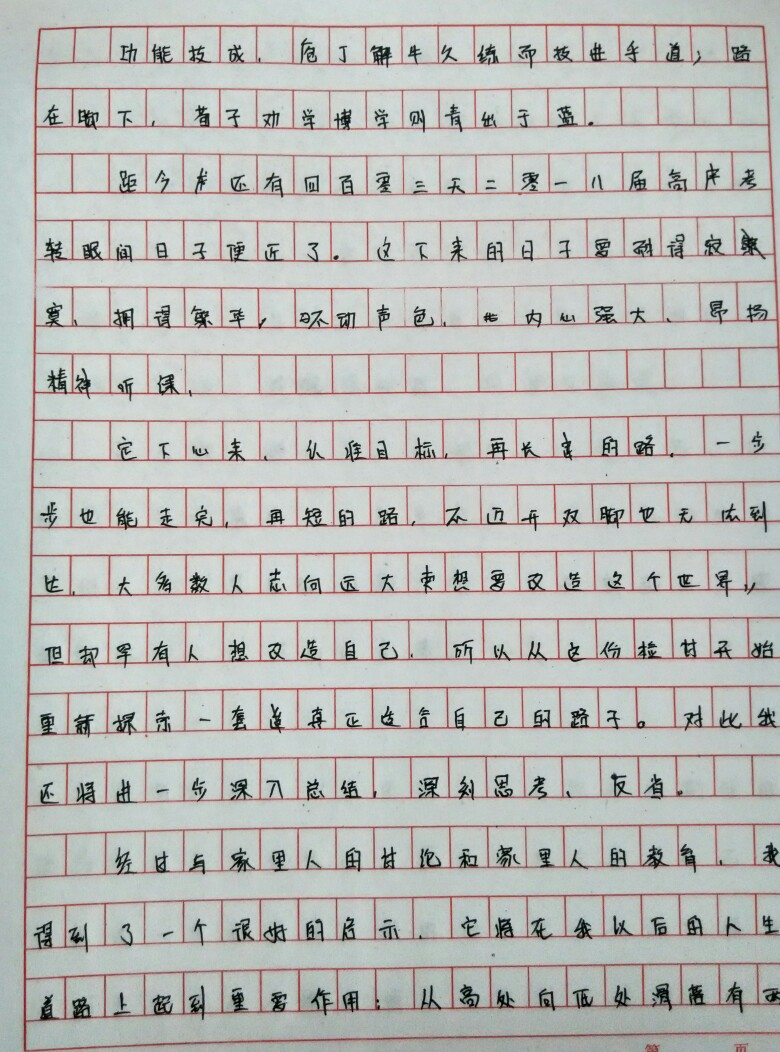 功能技成，庖丁解牛久练而技进乎道；路
在脚下，荀子劝学博学则青出于蓝。
距今还有四百零三天二零一八届高考
转眼间日子便近了。这下来的日子要耐得寂
寞，拥得繁华，不动声色，内心强大、昂扬
精神听课，
定下心来，认准目标，再长的路，一步
步也能走完，再短的路，不迈开双脚也无法到
达，大多数人志向远大想要改造这个世界，
但却罕有人想改造自己，所以从这份检讨开始
重新探索一套真正适合自己的路子。对此我
还将进一步深入总结，深刻思考、反省。
经过与家里人的讨论和家里人的教育，我
得到了一个很好的启示，它将在我以后的人生
道路上起到重要作用：从高处向低处滑落有
第 页